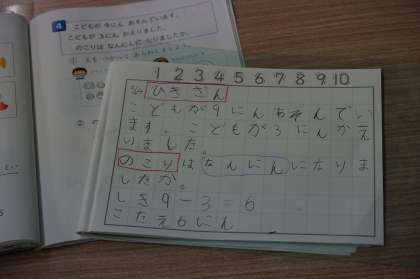 4
こどもが 9にん あそんでいます。
こどもが 3にん かえりました。
のこりは なんにんに なりましたか。
1 2 3 4 5 6 7 8 9 10
ひきざん
こどもが9にんあそんでい
ます。こどもが3にんかえ
りました。
のこりはなんにんになりま
したか。
しき9-3=6
こたえ6にん